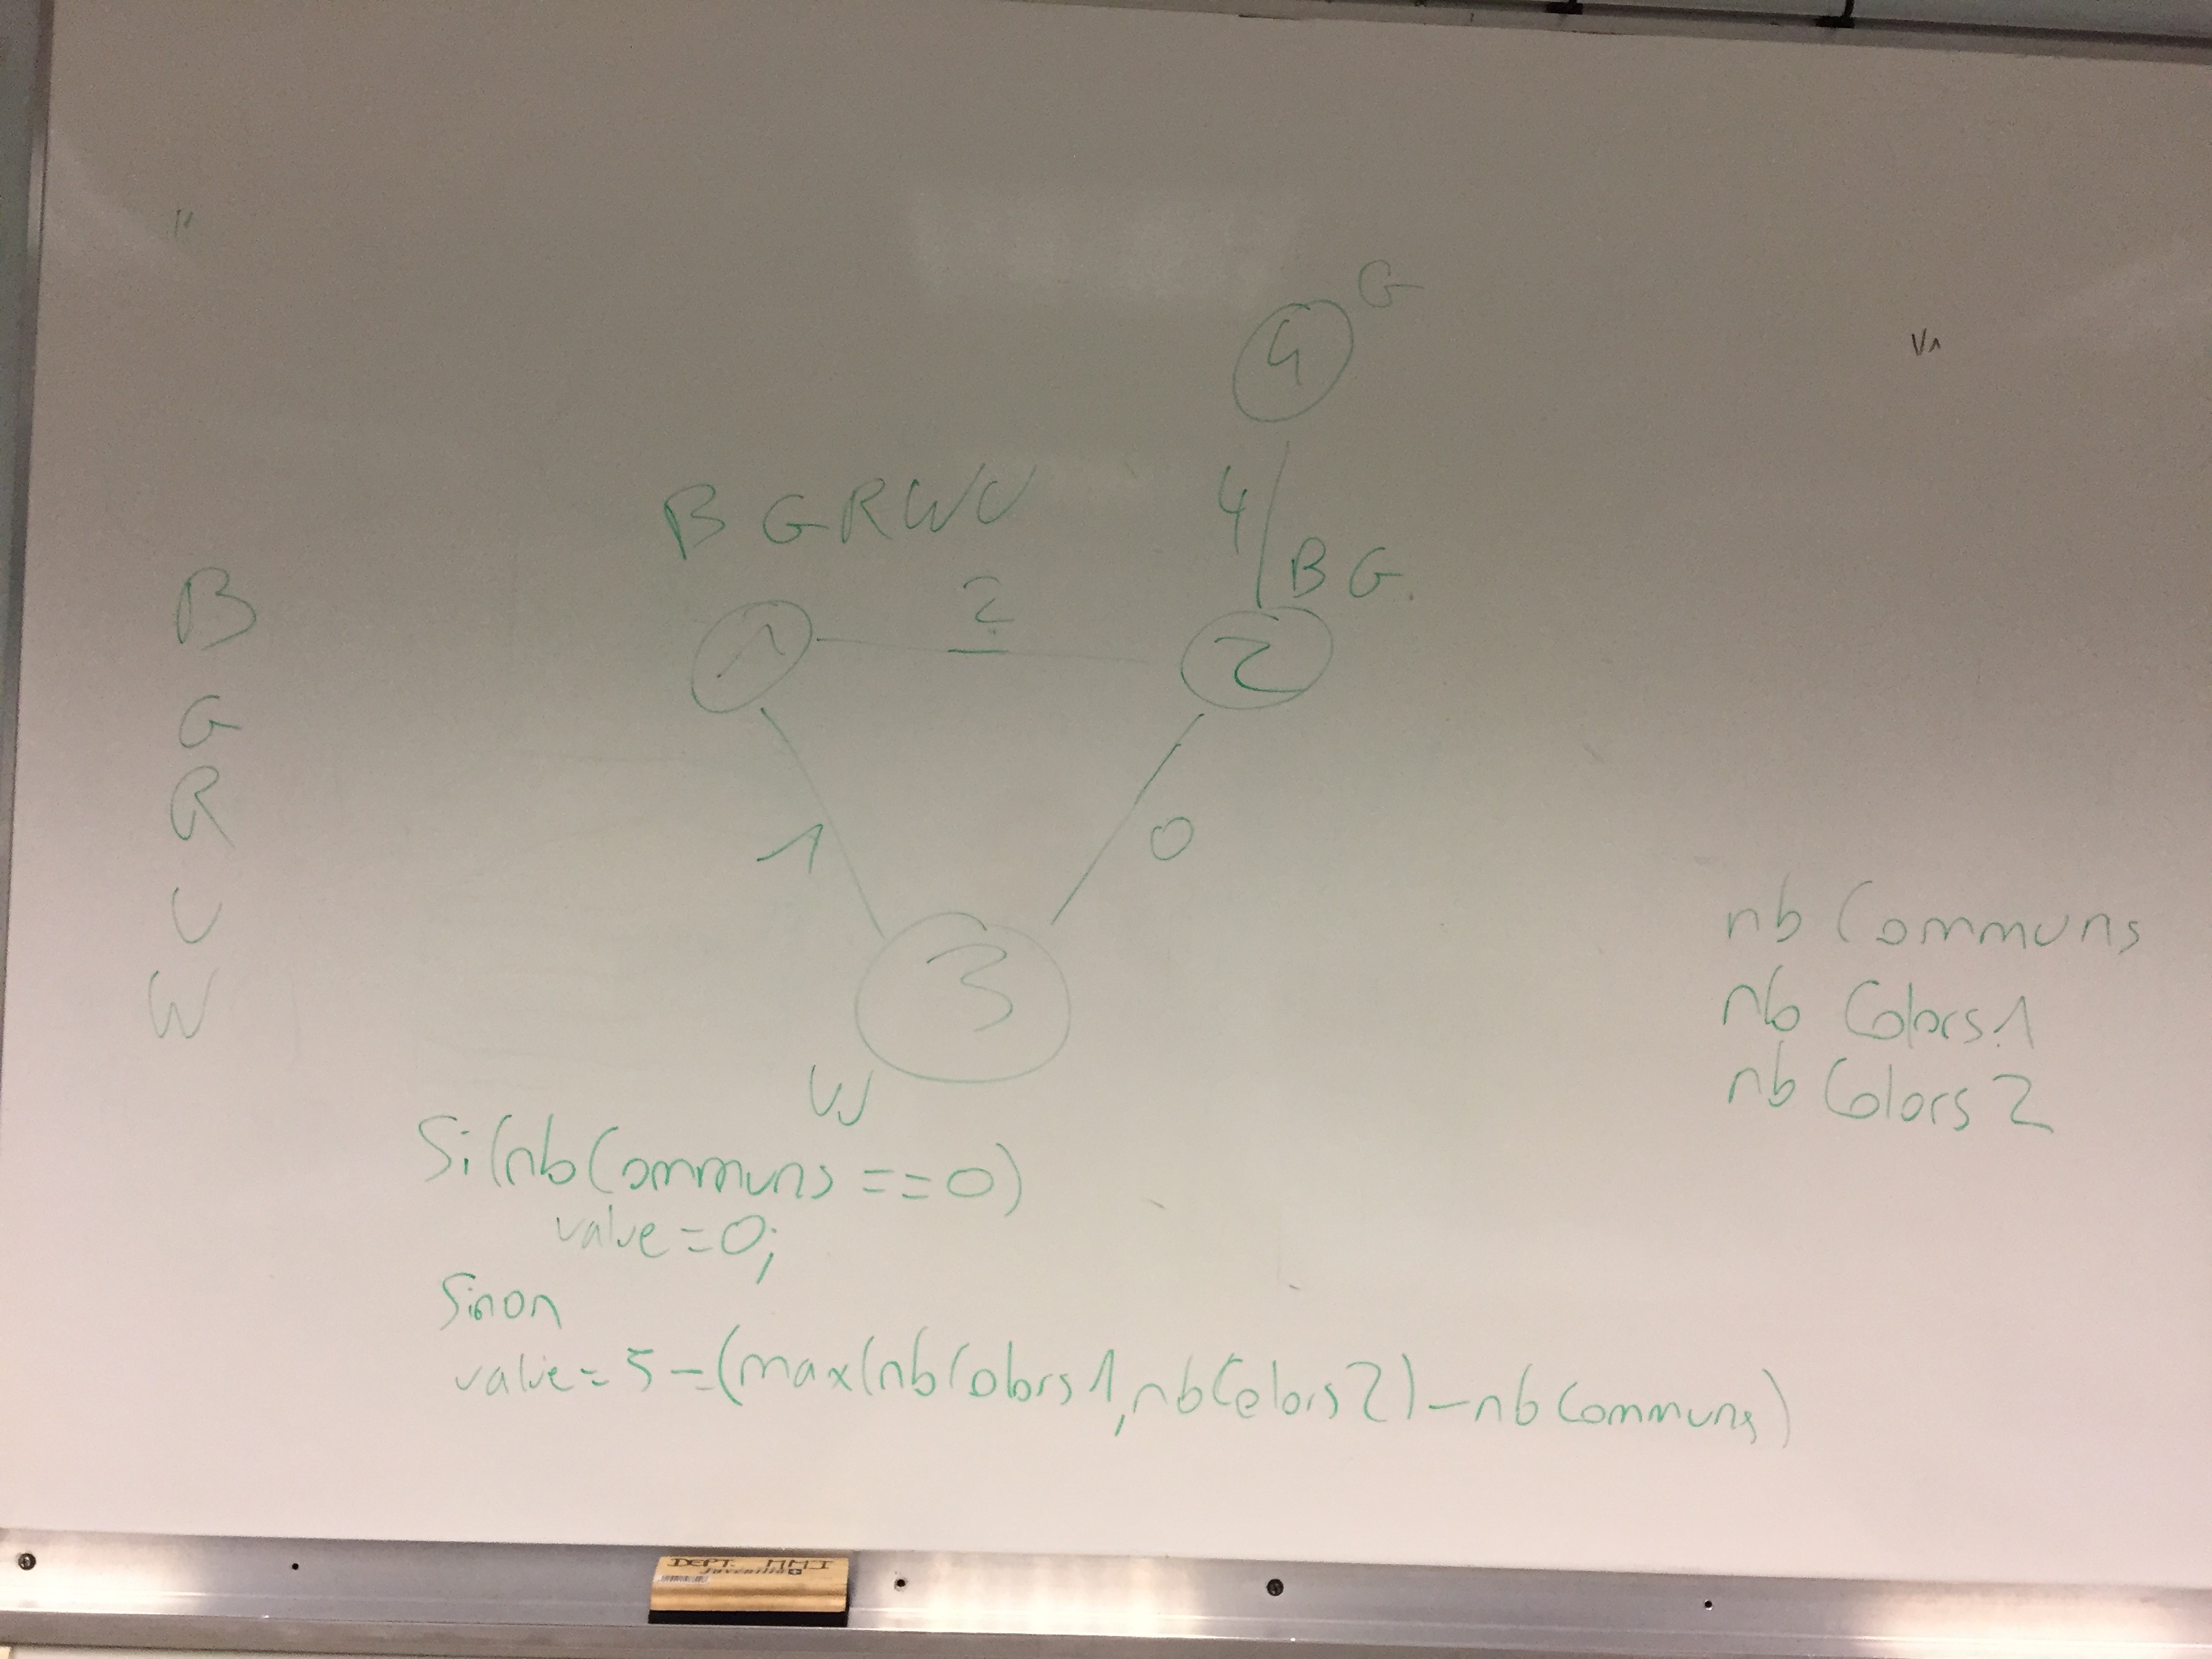 G
4
V1
BGRWU
4
BG
B
2
1
2
G
R
1
0
U
3
nb Communs
W
nb Colors 1
W
nb Colors 2
Si(nbCommuns ==0)
value=0;
Sinon
value=5-(max(nbColors1,nbColors2)-nbCommuns)
DEPT. MMI
Juventino